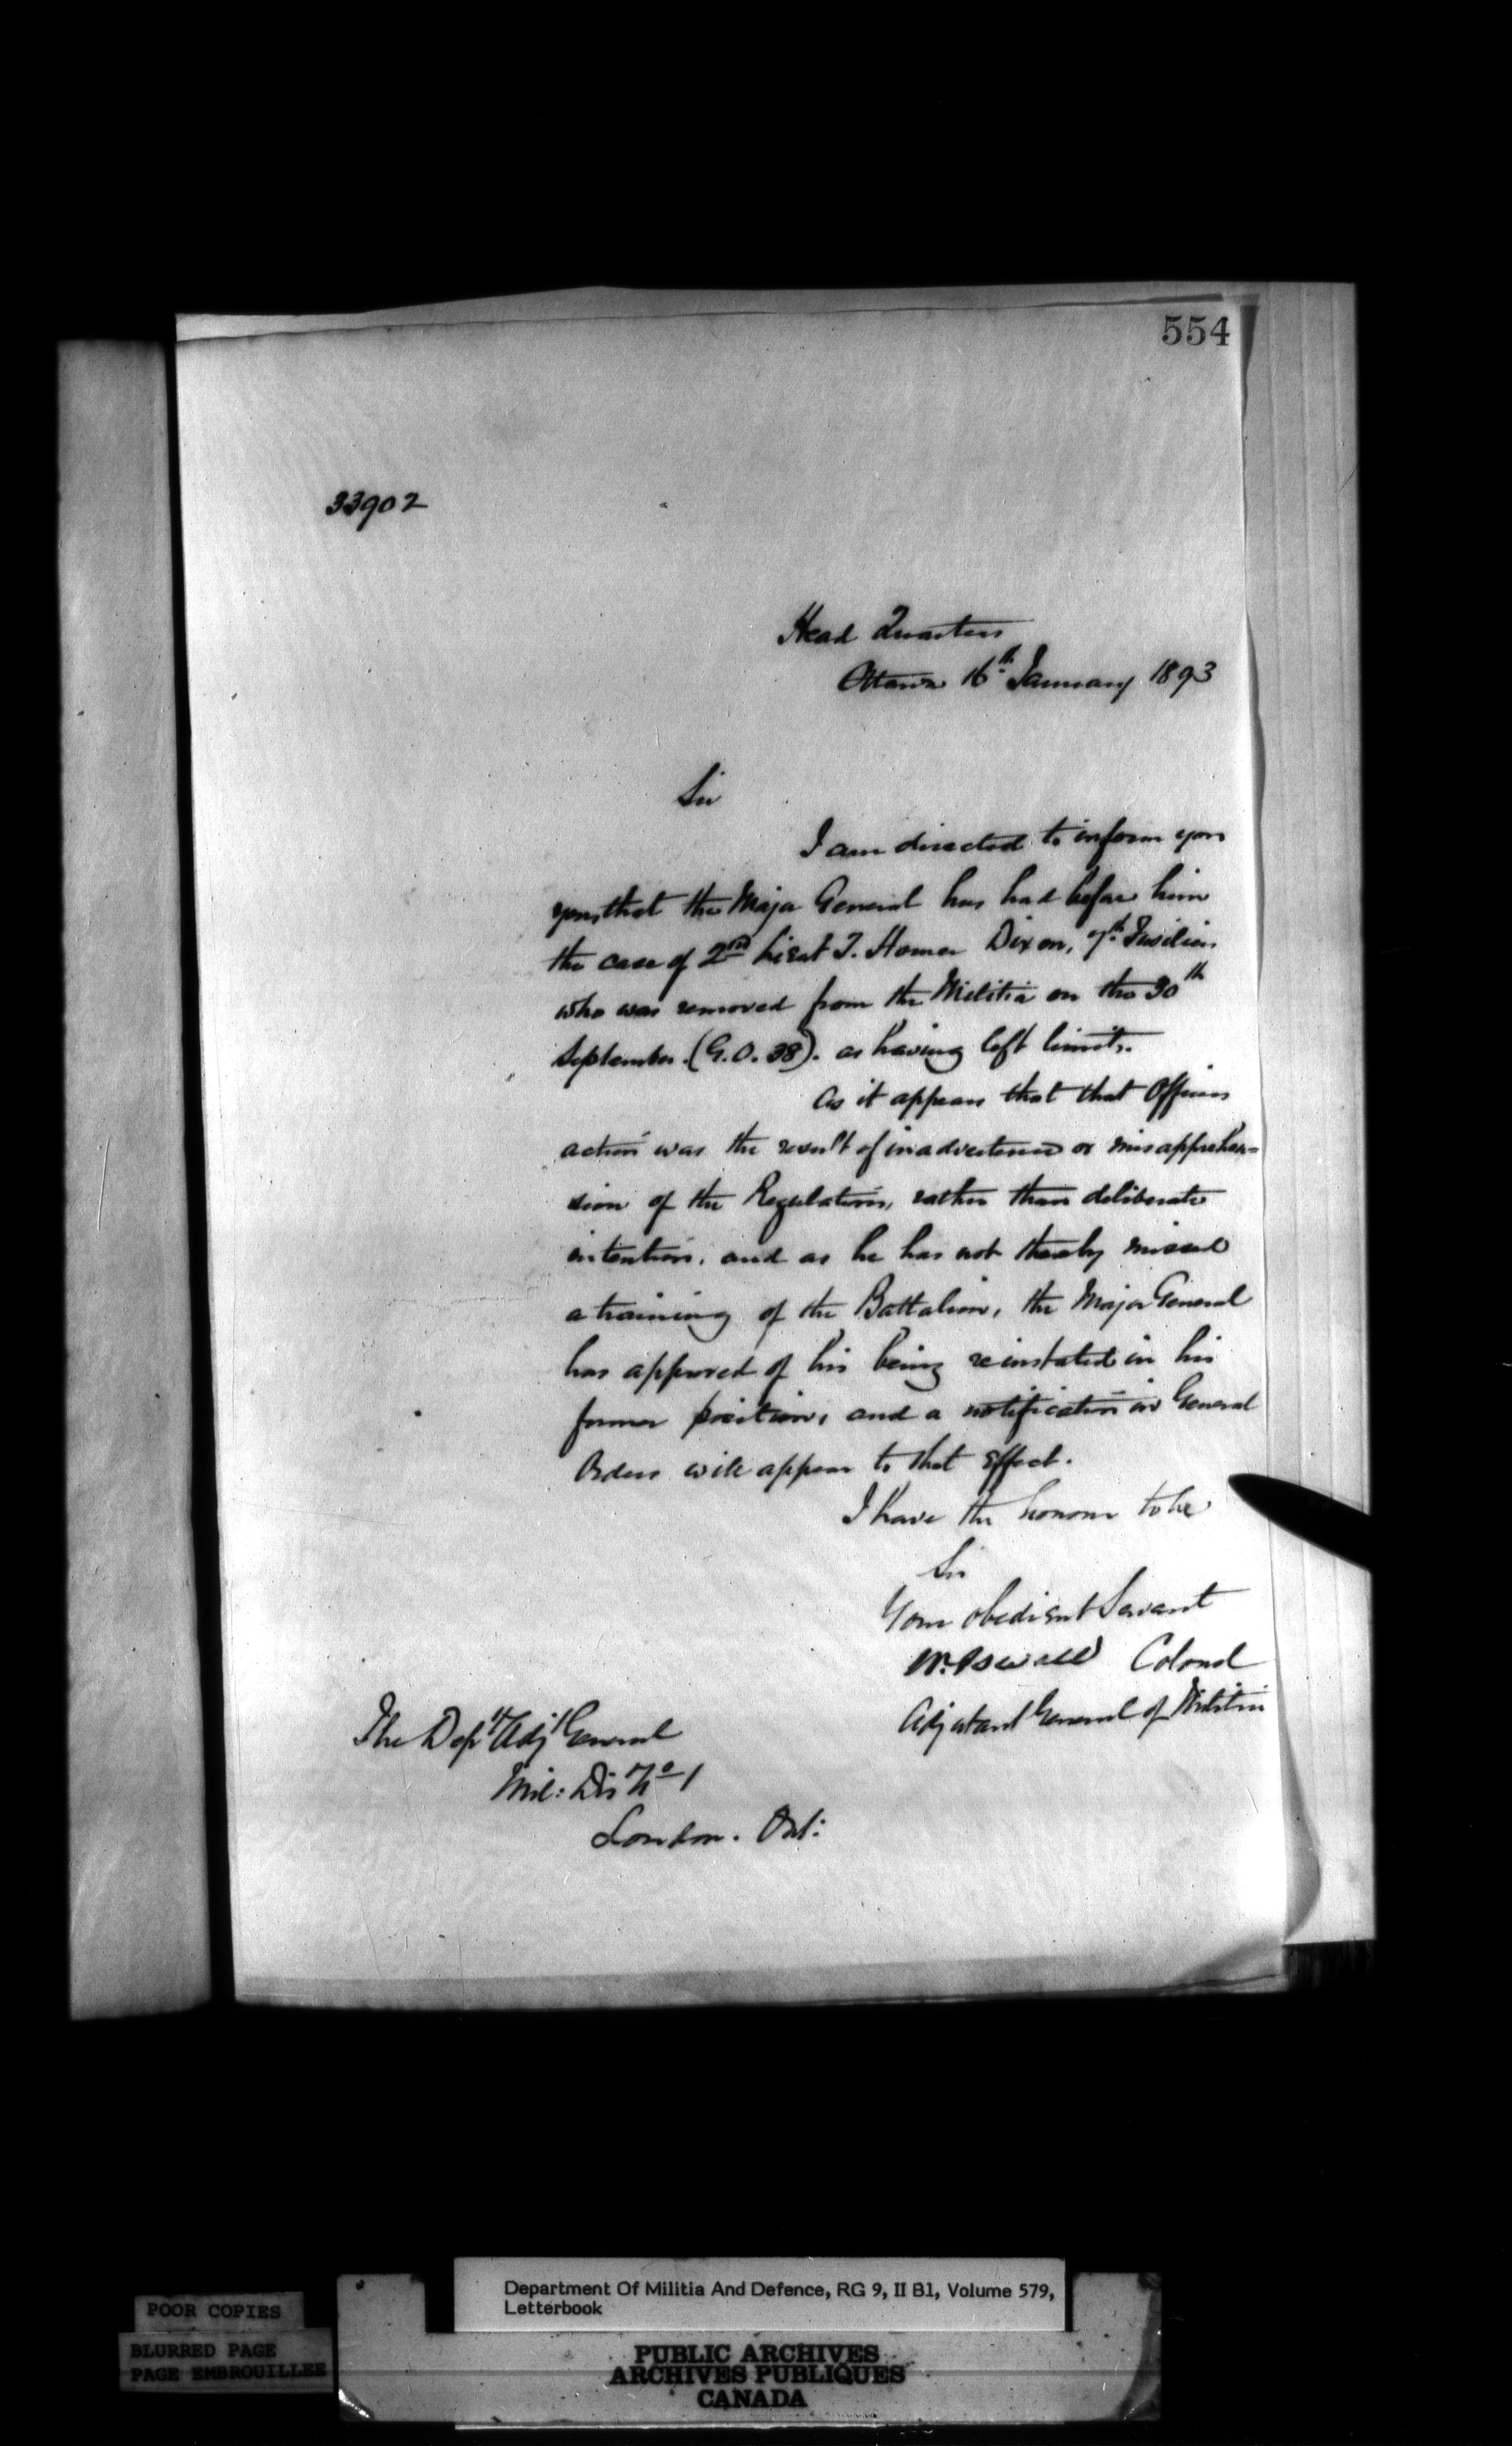 554
33902
Head Quarters
Ottawa 16th January 1893
Sir
I am directed to inform you
you, that the Major General has had before him
the case of 2nd Lieut T. Homer Dixon, 7th Fusiliers
who was removed from the Militia on the 30th
September. (G.O. 38). as having left limits.
As it appears that that Officers
action was the result of inadvertence or misapprehen=
sion of the Regulations, rather than deliberate
intention, and as he has not thereby missed
a training of the Battalion, the Major General
has approved of his being reinstated in his
former position, and a notification in General
Orders will appear to that effect.
I have the honour to be
Sir
Your obedient Servant
Colonel
Adjutant General of Militia
The Depty Adjt General
Mil: Dis No 1
London. Ont:
Department Of Militia And Defence, RG 9, II B1, Volume 579,
Letterbook
POOR COPIES
BLURRED PAGE
PAGE EMBROUILLEE
PUBLIC ARCHIVES
ARCHIVES PUBLIQUES
CANADA